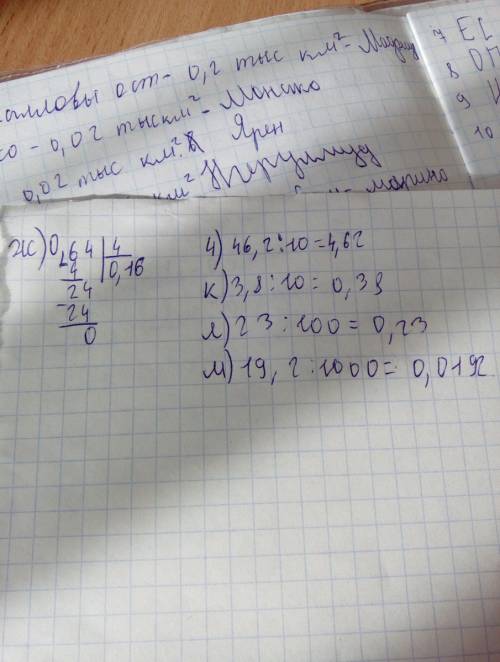 ост - 0,2 тыс км² - 
- 0,02 тыс км² - Монако
0,02 тыс км². Ярен
км²
7
8
9
10
ж) 0,64 | 4
4 0,16
24
24
0
4) 46,2 : 10 = 4,62
к) 3,8 : 10 = 0,38
л) 23 : 100 = 0,23
м) 19,2 : 1000 = 0,0192